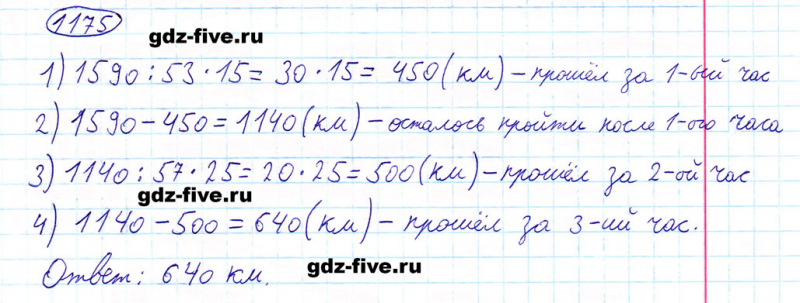 1175
gdz-five.ru
1) 1590 : 53 · 15 = 30 · 15 = 450 (км) – прошёл за 1-ый час
2) 1590 – 450 = 1140 (км) – осталось пройти после 1-ого часа
3) 1140 : 57 · 25 = 20 · 25 = 500 (км) – прошёл за 2-ой час
gdz-five.ru
4) 1140 – 500 = 640 (км) – прошёл за 3-ий час.
Ответ: 640 км.
gdz-five.ru